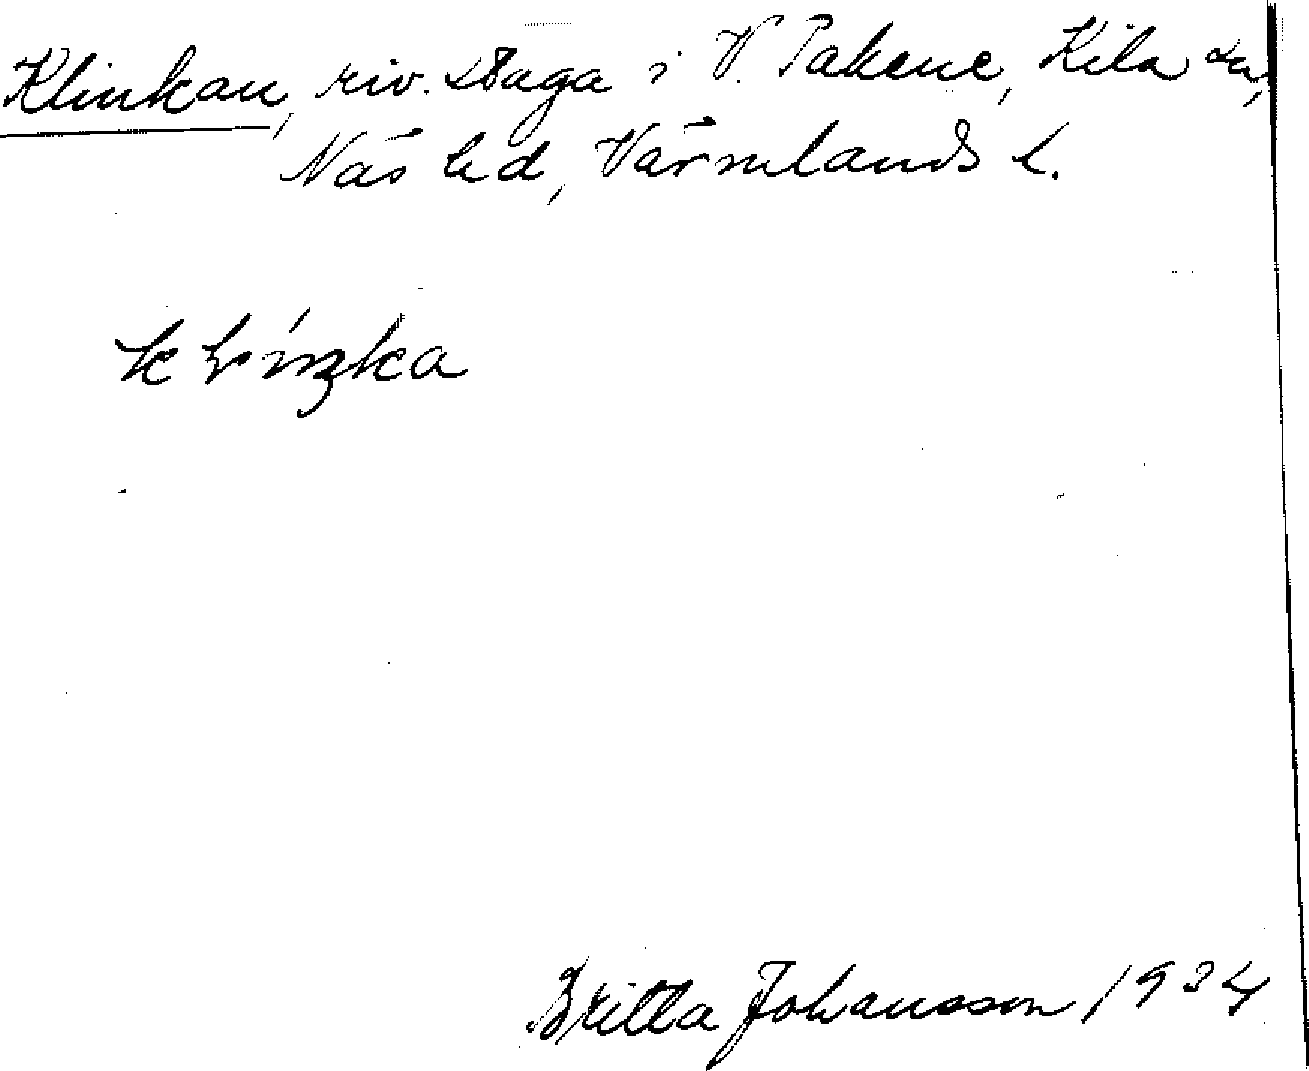 Klinkan, riv. stuga i V. Takene, Kila sn,
Näs hd, Värmlands l.
Britta Johansson 1934